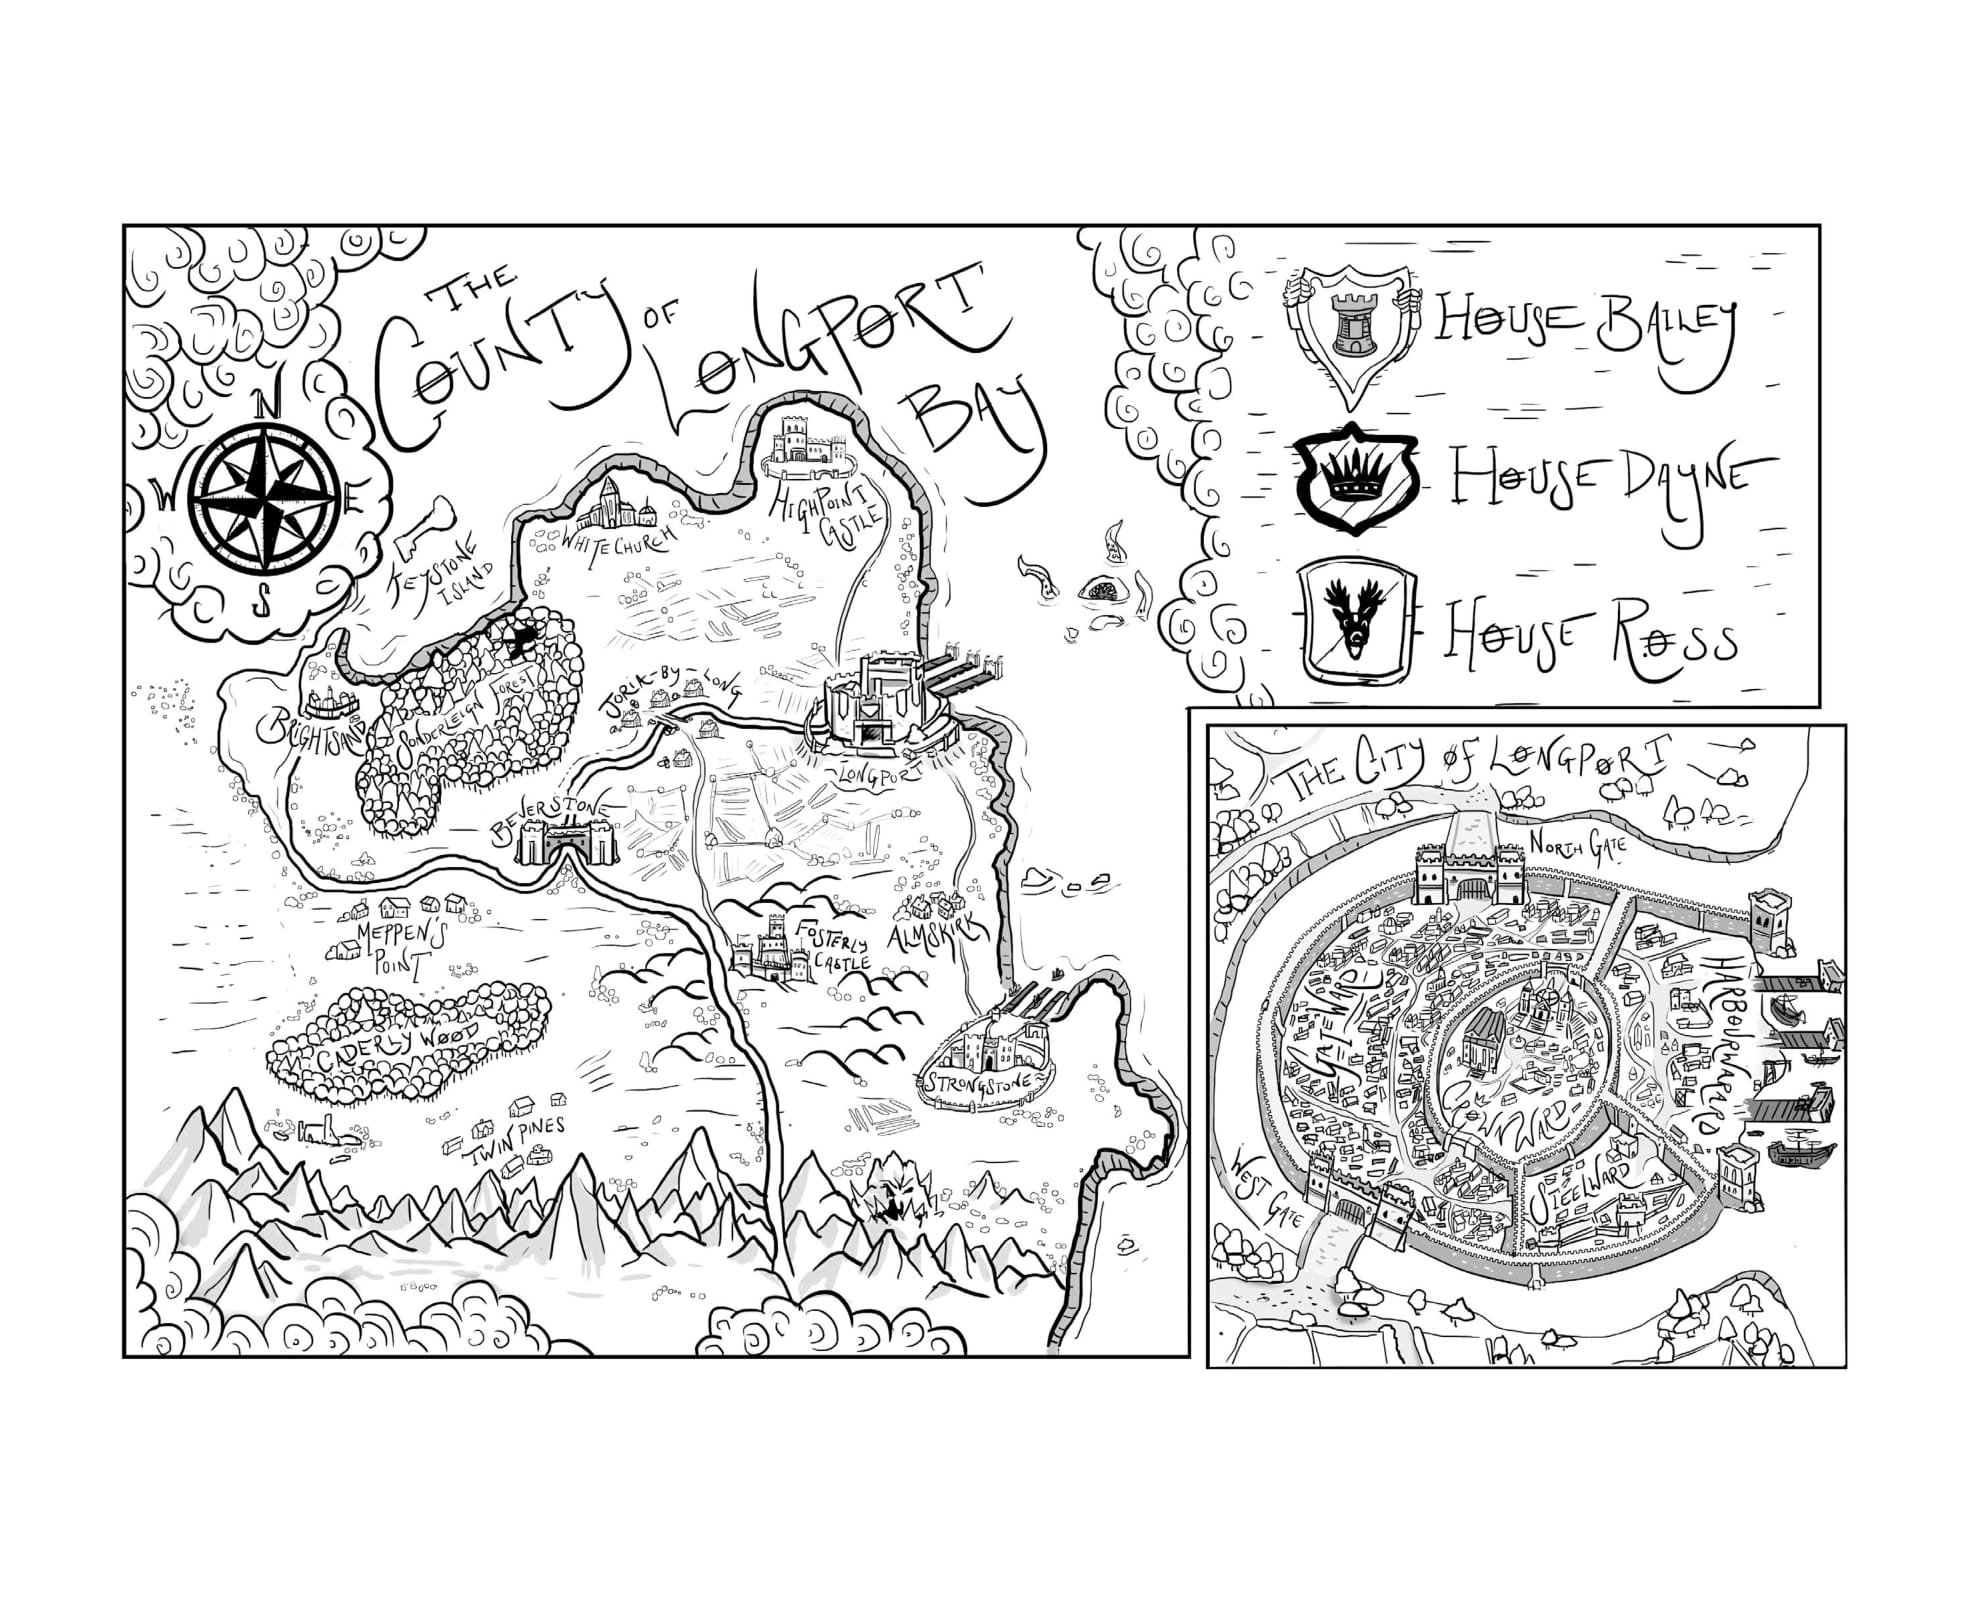 THE
COUNTY OF
LONGPORT
BAY
N
W E
S
KEYSTONE
ISLAND
WHITECHURCH
HIGHPOINT
CASTLE
BRIGHTSAND
SONDERLEIGN FOREST
JORIK-BY-LONG
LONGPORT
BEVERSTONE
MEPPEN'S
POINT
FOSTERLY
CASTLE
ALMSKIRK
CADERLY WOOD
STRONGSTONE
TWIN PINES
HOUSE BAILEY
HOUSE DAYNE
HOUSE ROSS
THE CITY OF LONGPORT
NORTH GATE
GATEWARD
HARBOURWARD
CROWNWARD
STEELWARD
WEST GATE